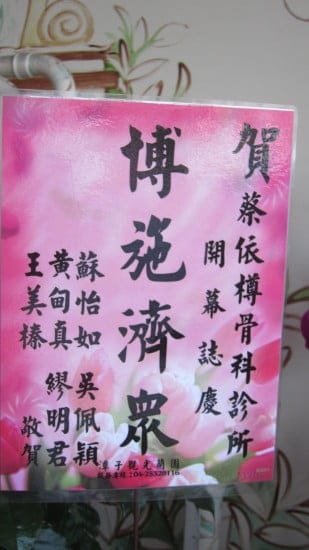 賀蔡依樽骨科診所
開幕誌慶
博施濟眾
蘇怡如 吳佩穎
黃甸真 繆明君
王美榛 敬賀
潭子觀光蘭園